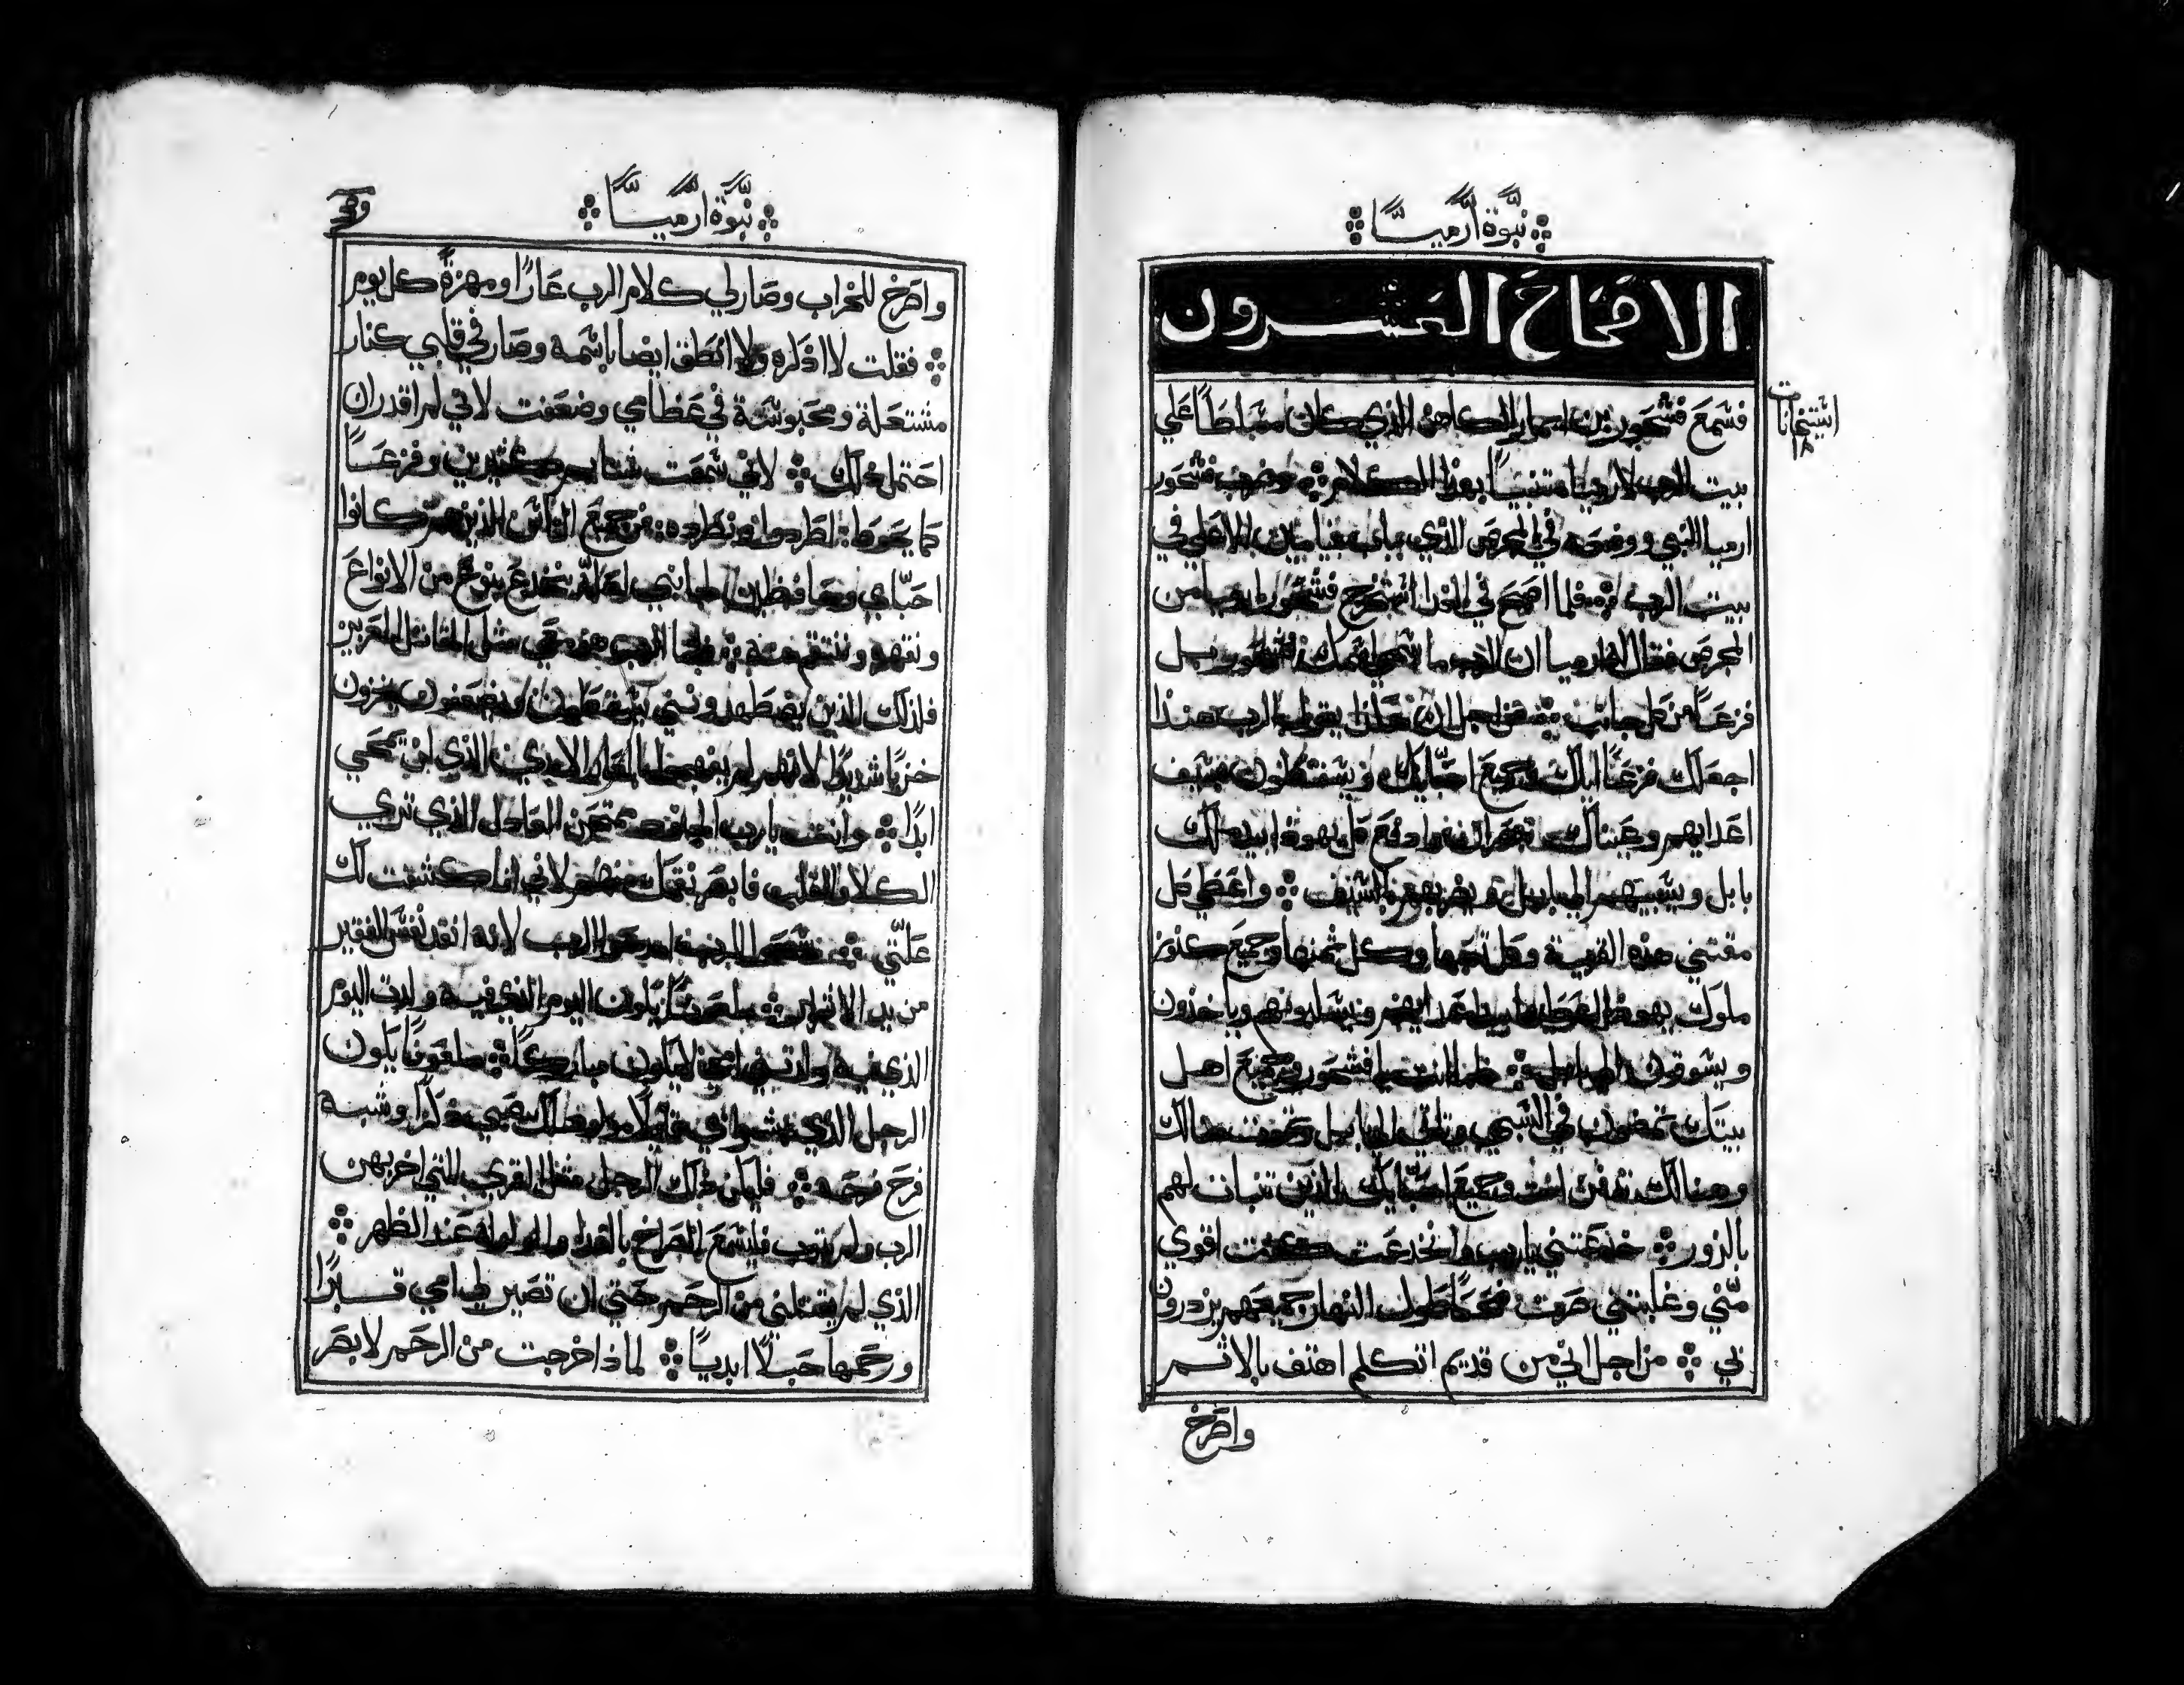 نبوة ارميا
الاصحاح العشرون
فسمع فشحور بن امار الكاهن الذي كان مسلطا علي
استيخانات
١٨
بيت الرب لارميا متنبيا بهذا الكلام وضرب فشحور
ارميا النبي ووضعه في المحرص الذي بباب بنيامين الاعلي في
بيت الرب فلما اصبح في الغد استخرج فشحور ارميا من
المحرص فقال له ارميا ان الرب ما سمي اسمك فشحور بل
فزعا من كل جانب من اجل ان هكذا يقول الرب هنذا
اجعلك فزعا اياك وجميع احبايك ويسقطون بسيف
اعدايهم وعيناك تبصران وادفع كل يهودا بيد ملك
بابل ويسبيهم الي بابل ويضربهم بالسيف واعطي كل
مقتني هذه القرية وكل تعبها وكل ثمنها وجميع كنوز
ملوك يهودا اعطيها بيد اعدايهم ويسلبونهم وياخذون
ويسوقون الي بابل فاما انت يا فشحور وجميع اهل
بيتك تمضون في السبي وتاتي الي بابل وتموت هنالك
وهنالك تدفن انت وجميع احبايك الذين تنبات لهم
بالزور خدعتني يا رب وانخدعت كنت اقوي
مني وغلبتني صرت ضحكا طول النهار جميعهم يزدرون
بي من اجل اني من قديم اتكلم اهتف بالاثم
واصرخ
نبوة ارميا
واصرخ للخراب وصار لي كلام الرب عارا ومهزة كل يوم
فقلت لا اذكره ولا انطق ايضا باسمه وصار في قلبي كنار
مشتعلة ومحبوسة في عظامي وضعفت لاني لم اقدر ان
احتمل ذلك لاني سمعت شتايم كثيرين وفزعا
كما يحوط اطردوا ونطرده من جميع الناس الذين كانوا
احباي وحافظين جانبي لعله ينخدع بنوع من الانواع
ونقهره وننتقم منه فاما الرب هو معي مثل المقاتل العزيز
فلذلك الذين يضطهدونني يسقطون ويضعفون يخزون
خزيا شديدا لانهم لم يفهموا العار الابدي الذي لن يمحي
ابدا وانت يا رب الجنود ممتحن العادل الذي تري
الكلا والقلب فابصر نقمتك منهم لاني انا كشفت لك
علتي سبحوا الرب امدحوا الرب لانه انقذ نفس الفقير
من يد الاشرار ملعونا يكون اليوم الذي فيه ولدت اليوم
الذي فيه ولدتني امي لا يكون مباركا ملعونا يكون
الرجل الذي بشر ابي قايلا مولود لك صبي ذكرا وشبه
فرح فرحه فليكن ذلك الرجل مثل القري التي اخربهن
الرب ولم يتوب فليسمع الصراخ بالغداه والولوله عند الظهر
الذي لم يقتلني من الرحم حتي ان تصير لي امي قبرا
ورحمها حبلا ابديا لماذا خرجت من الرحم لابصر